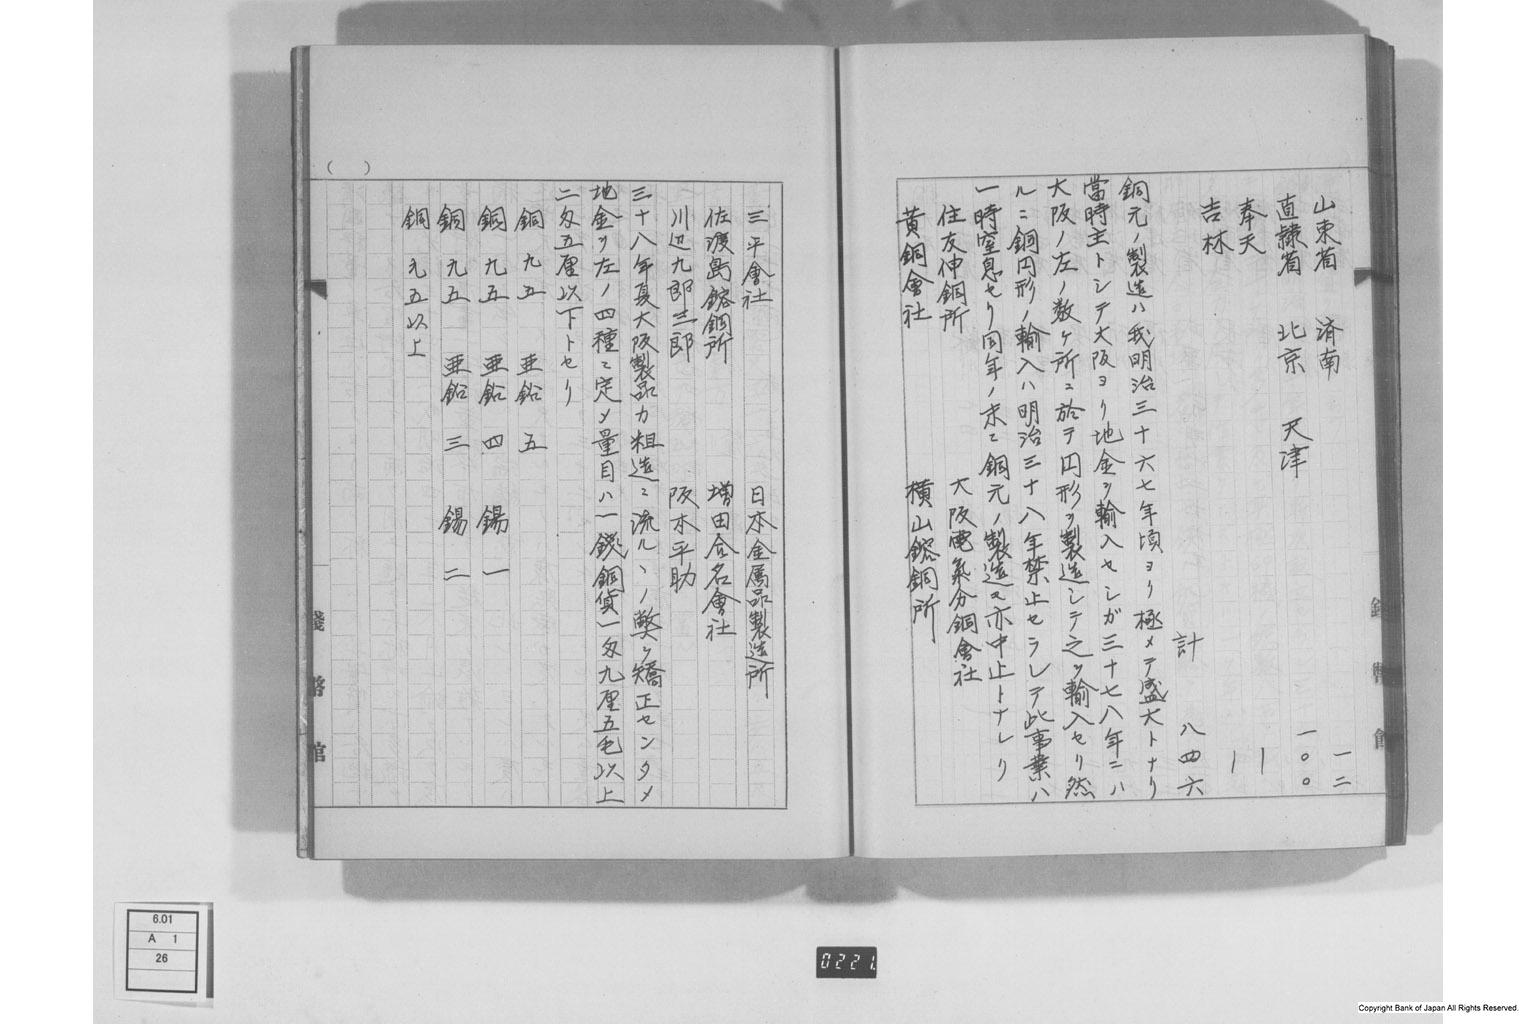 山東省　済南　一二
直隷省　北京　天津　一〇〇
奉天　一
吉林　一
計　八四六
銅元ノ製造ハ我明治三十六七年頃ヨリ極メテ盛大トナリ
當時主トシテ大阪ヨリ地金ヲ輸入セシガ三十七八年ニハ
大阪ノ左ノ数ヶ所ニ於テ円形ヲ製造シテ之ヲ輸入セリ然
ルニ銅円形ノ輸入ハ明治三十八年禁止セラレテ此事業ハ
一時窒息セリ同年ノ末ニ銅元ノ製造モ亦中止トナレリ
住友伸銅所　大阪電氣分銅會社
黄銅會社　横山鎔銅所
三平會社　日本金属品製造所
佐渡島鎔銅所　増田合名會社
川辺九郎三郎　阪本平助
三十八年夏大阪製品カ粗造ニ流ルヽノ弊ヲ矯正センタメ
地金ヲ左ノ四種ニ定メ量目ハ一銭銅貨一匁九厘五毛以上
二匁五厘以下トセリ
銅　九五　亜鉛　五
銅　九五　亜鉛　四　錫　一
銅　九五　亜鉛　三　錫　二
銅　九五以上
(　)
錢幣館
6.01
A 1
26
0221
Copyright Bank of Japan All Rights Reserved.